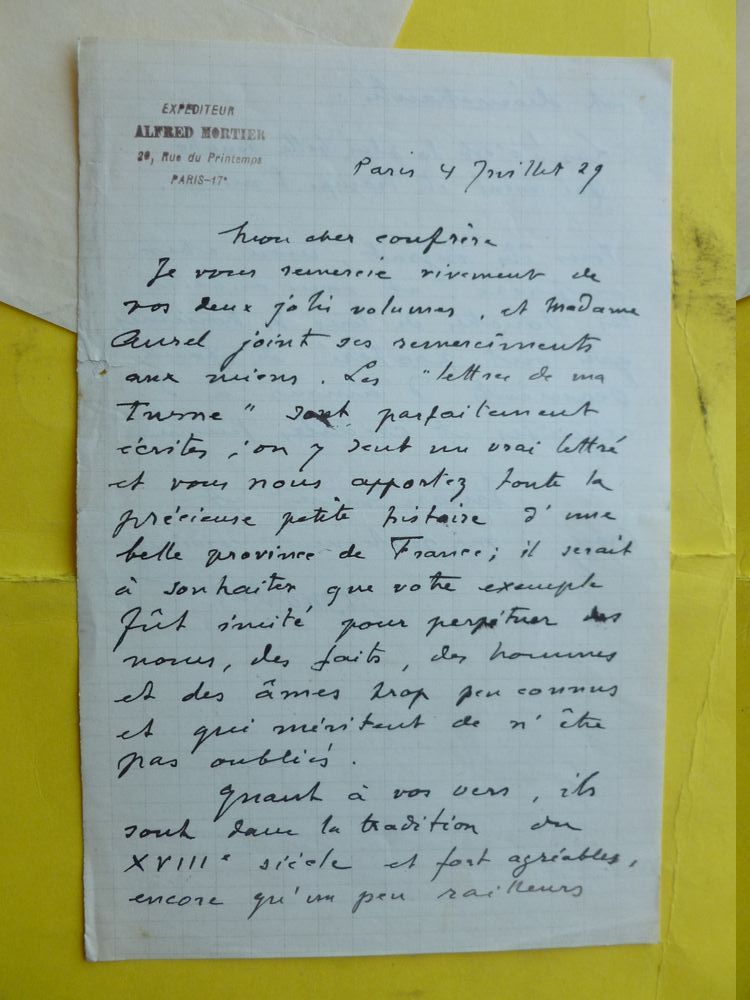 EXPÉDITEUR
ALFRED MORTIER
29, Rue du Printemps
PARIS-17e
Paris 4 Juillet 29
Mon cher confrère
Je vous remercie vivement de
vos deux jolis volumes, et Madame
Aurel joint ses remerciments
aux miens. Les "lettres de ma
Turne" sont parfaitement
écrites ; on y sent un vrai lettré
et vous nous apportez toute la
précieuse petite histoire d'une
belle province de France ; il serait
à souhaiter que votre exemple
fût imité pour perpétuer des
noms, des faits, des hommes
et des âmes trop peu connus
et qui méritent de n'être
pas oubliés.
Quant à vos vers, ils
sont dans la tradition du
XVIIIe siècle et fort agréables,
encore qu'un peu railleurs